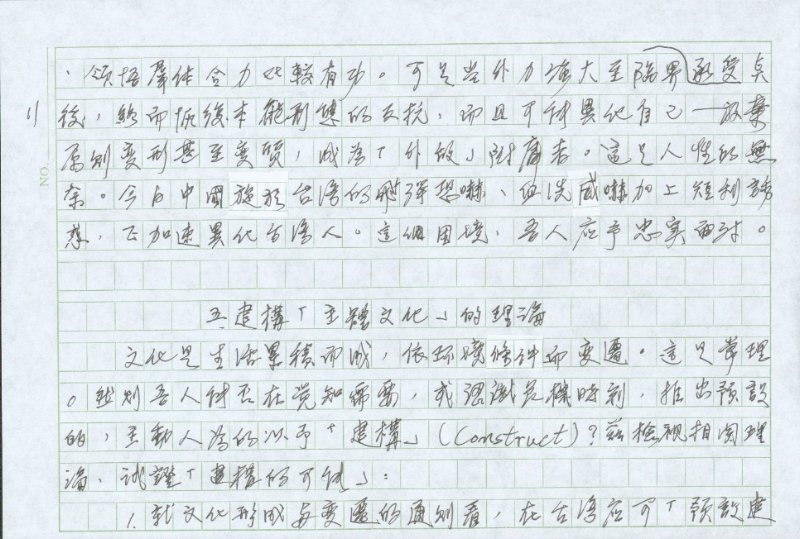 、領悟羣体合力比較有功。可是当外力強大至臨界承受点
11 後，終而恢復本能刑態的反抗，而且可能異化自己—放棄
原則变形甚至变質，成為「外敌」附庸者。這是人性的無
奈。今日中國施於台湾的飛彈恐嚇、血洗威嚇加上短利誘
惑，正加速異化台湾人。這個困境，吾人应予忠实面对。
五、建構「主體文化」的理論
文化是生活累積而成，依环境條件而变遷。這是常理
。然則吾人能否在覚知需要，或强識危機時刻，推出預設
的，主動人為的以予「建構」(Construct)？茲檢視相関理
論，試證「建構的可能」：
1. 就文化形成與变遷的通則看，在台湾应可「預設建
NO.